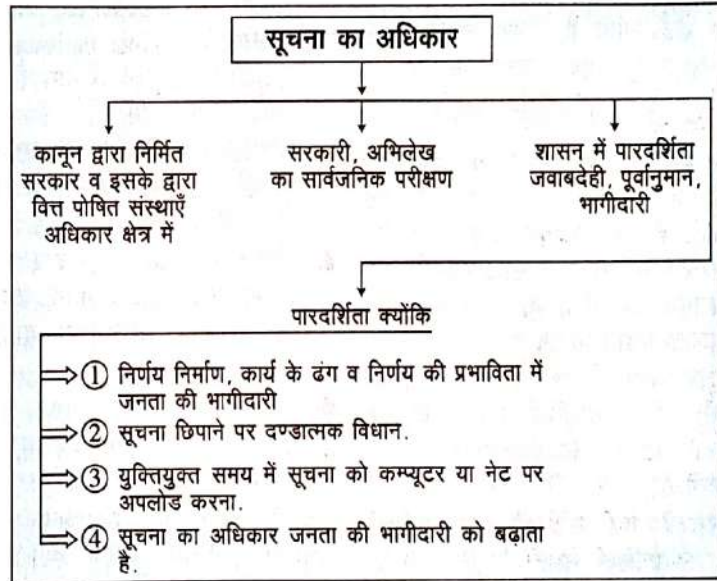 सूचना का अधिकार
कानून द्वारा निर्मित
सरकार व इसके द्वारा
वित्त पोषित संस्थाएँ
अधिकार क्षेत्र में
सरकारी, अभिलेख
का सार्वजनिक परीक्षण
शासन में पारदर्शिता
जवाबदेही, पूर्वानुमान,
भागीदारी
पारदर्शिता क्योंकि
① निर्णय निर्माण, कार्य के ढंग व निर्णय की प्रभाविता में
जनता की भागीदारी
② सूचना छिपाने पर दण्डात्मक विधान.
③ युक्तियुक्त समय में सूचना को कम्प्यूटर या नेट पर
अपलोड करना.
④ सूचना का अधिकार जनता की भागीदारी को बढ़ाता
है.